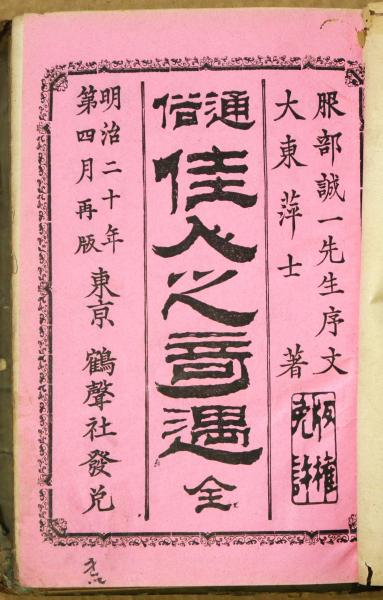 服部誠一先生序文
大東萍士著
版權免許
通俗
佳人之奇遇 全
明治二十年
第四月再版
東京 鶴聲社發兌